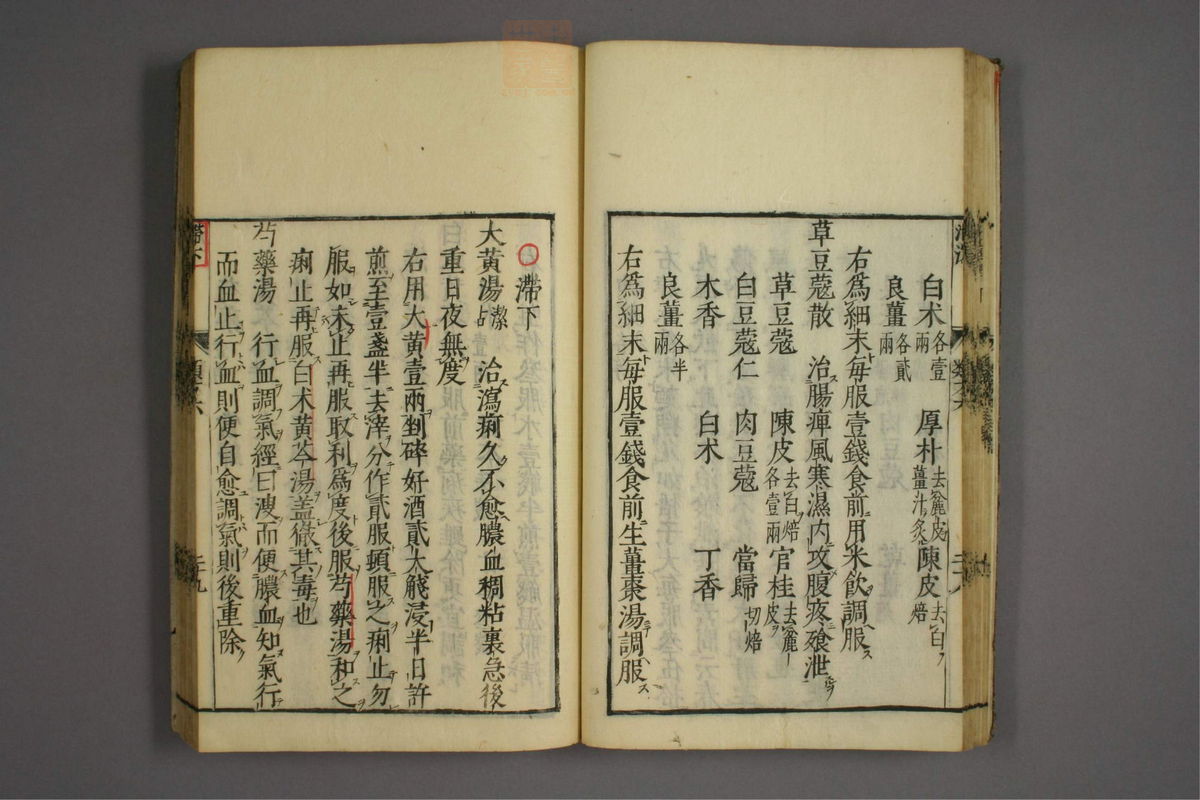 白朮各壹兩　厚朴去麄皮薑汁炙　陳皮去白焙
良薑各貳兩
右爲細末每服壹錢食前用米飮調服
草豆蔻散　治腸痺風寒濕內攻腹疼飱泄
草豆蔻　陳皮去白焙各壹兩　官桂去麄皮
白豆蔻仁　肉豆蔻　當歸切焙
木香　白朮　丁香
良薑各半兩
右爲細末每服壹錢食前生薑棗湯調服
滯下
大黃湯潔占　治瀉痢久不愈膿血稠粘裏急後
重日夜無度
右用大黃壹兩剉碎好酒貳大盞浸半日許
煎至壹盞半去滓分作貳服頓服之痢止勿
服如未止再服取利爲度後服芍藥湯和之
痢止再服白朮黃芩湯盖徹其毒也
芍藥湯　行血調氣經曰溲而便膿血知氣行
而血止行血則便自愈調氣則後重除